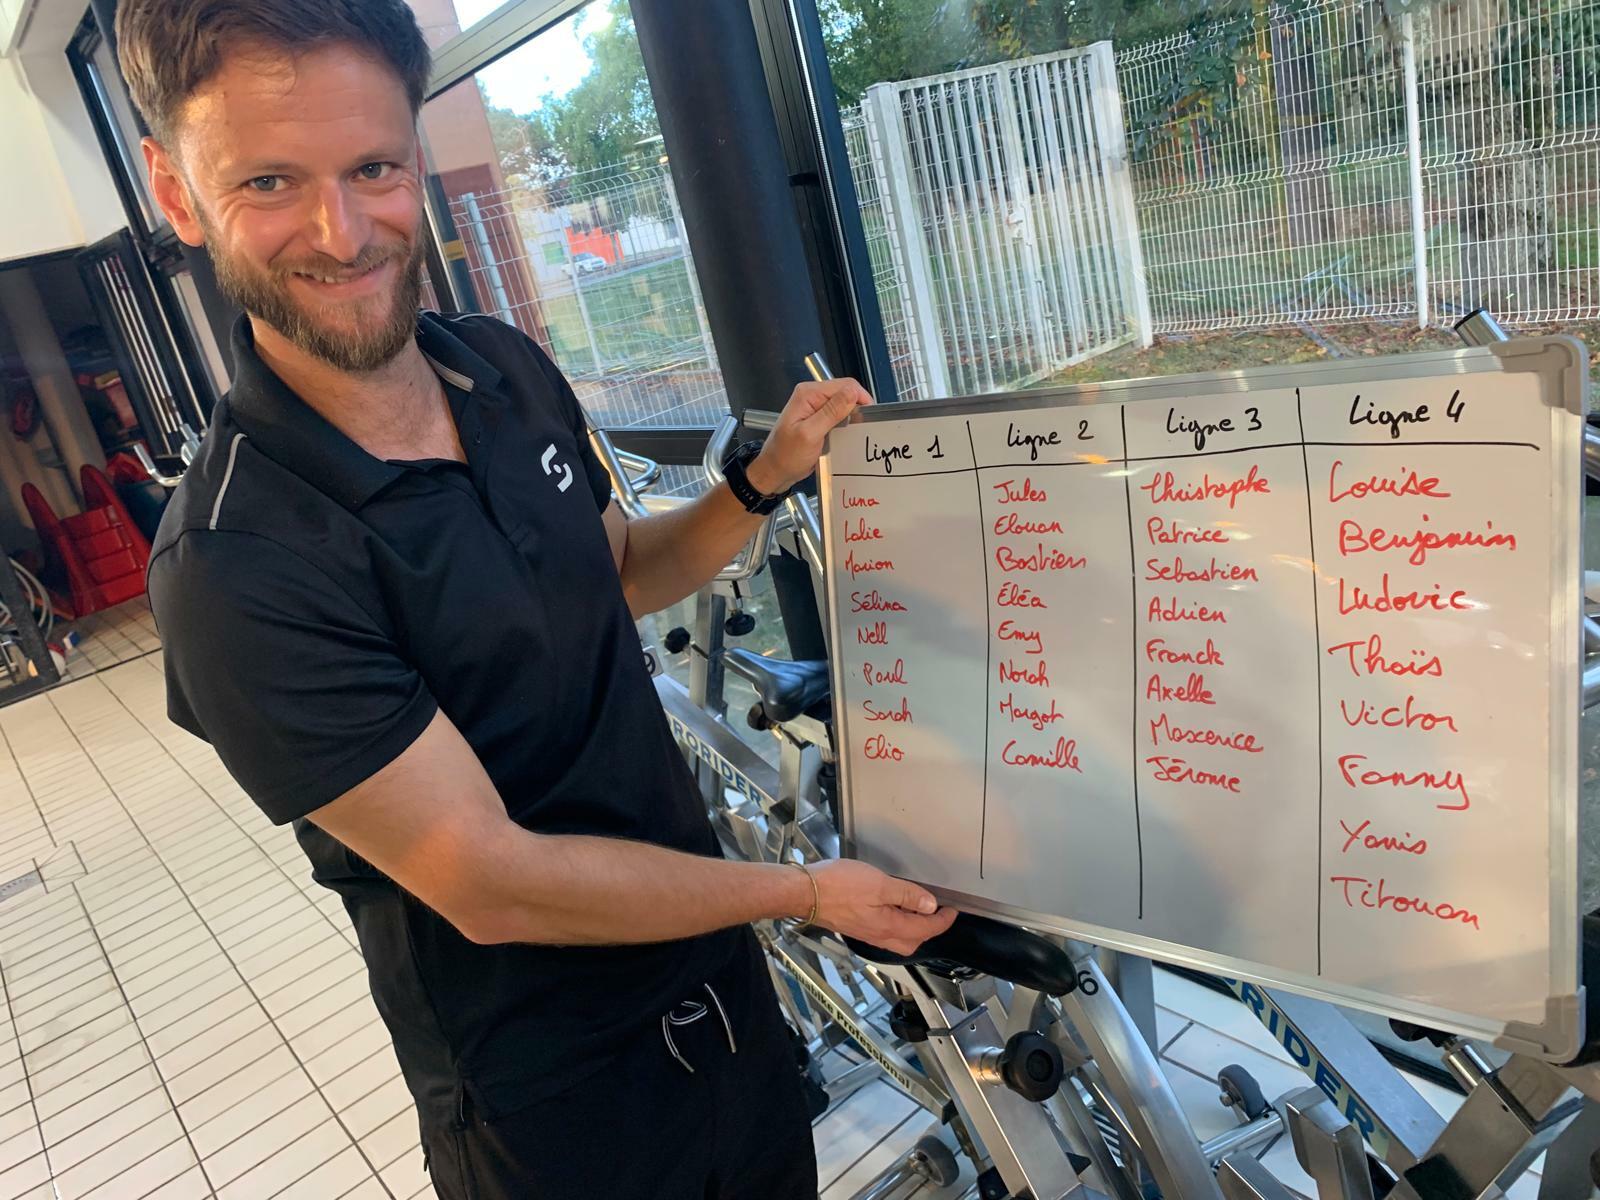 Ligne 1
Luna
Lalie
Marion
Sélina
Nell
Paul
Sarah
Elio
Ligne 2
Jules
Elouan
Bastien
Éléa
Emy
Norah
Margot
Camille
Ligne 3
Christophe
Patrice
Sebastien
Adrien
Franck
Axelle
Maxence
Jérome
Ligne 4
Louise
Benjamin
Ludovic
Thaïs
Victor
Fanny
Yanis
Titouan
9
RORIDER
Aquabike Professional
6
RORIDER